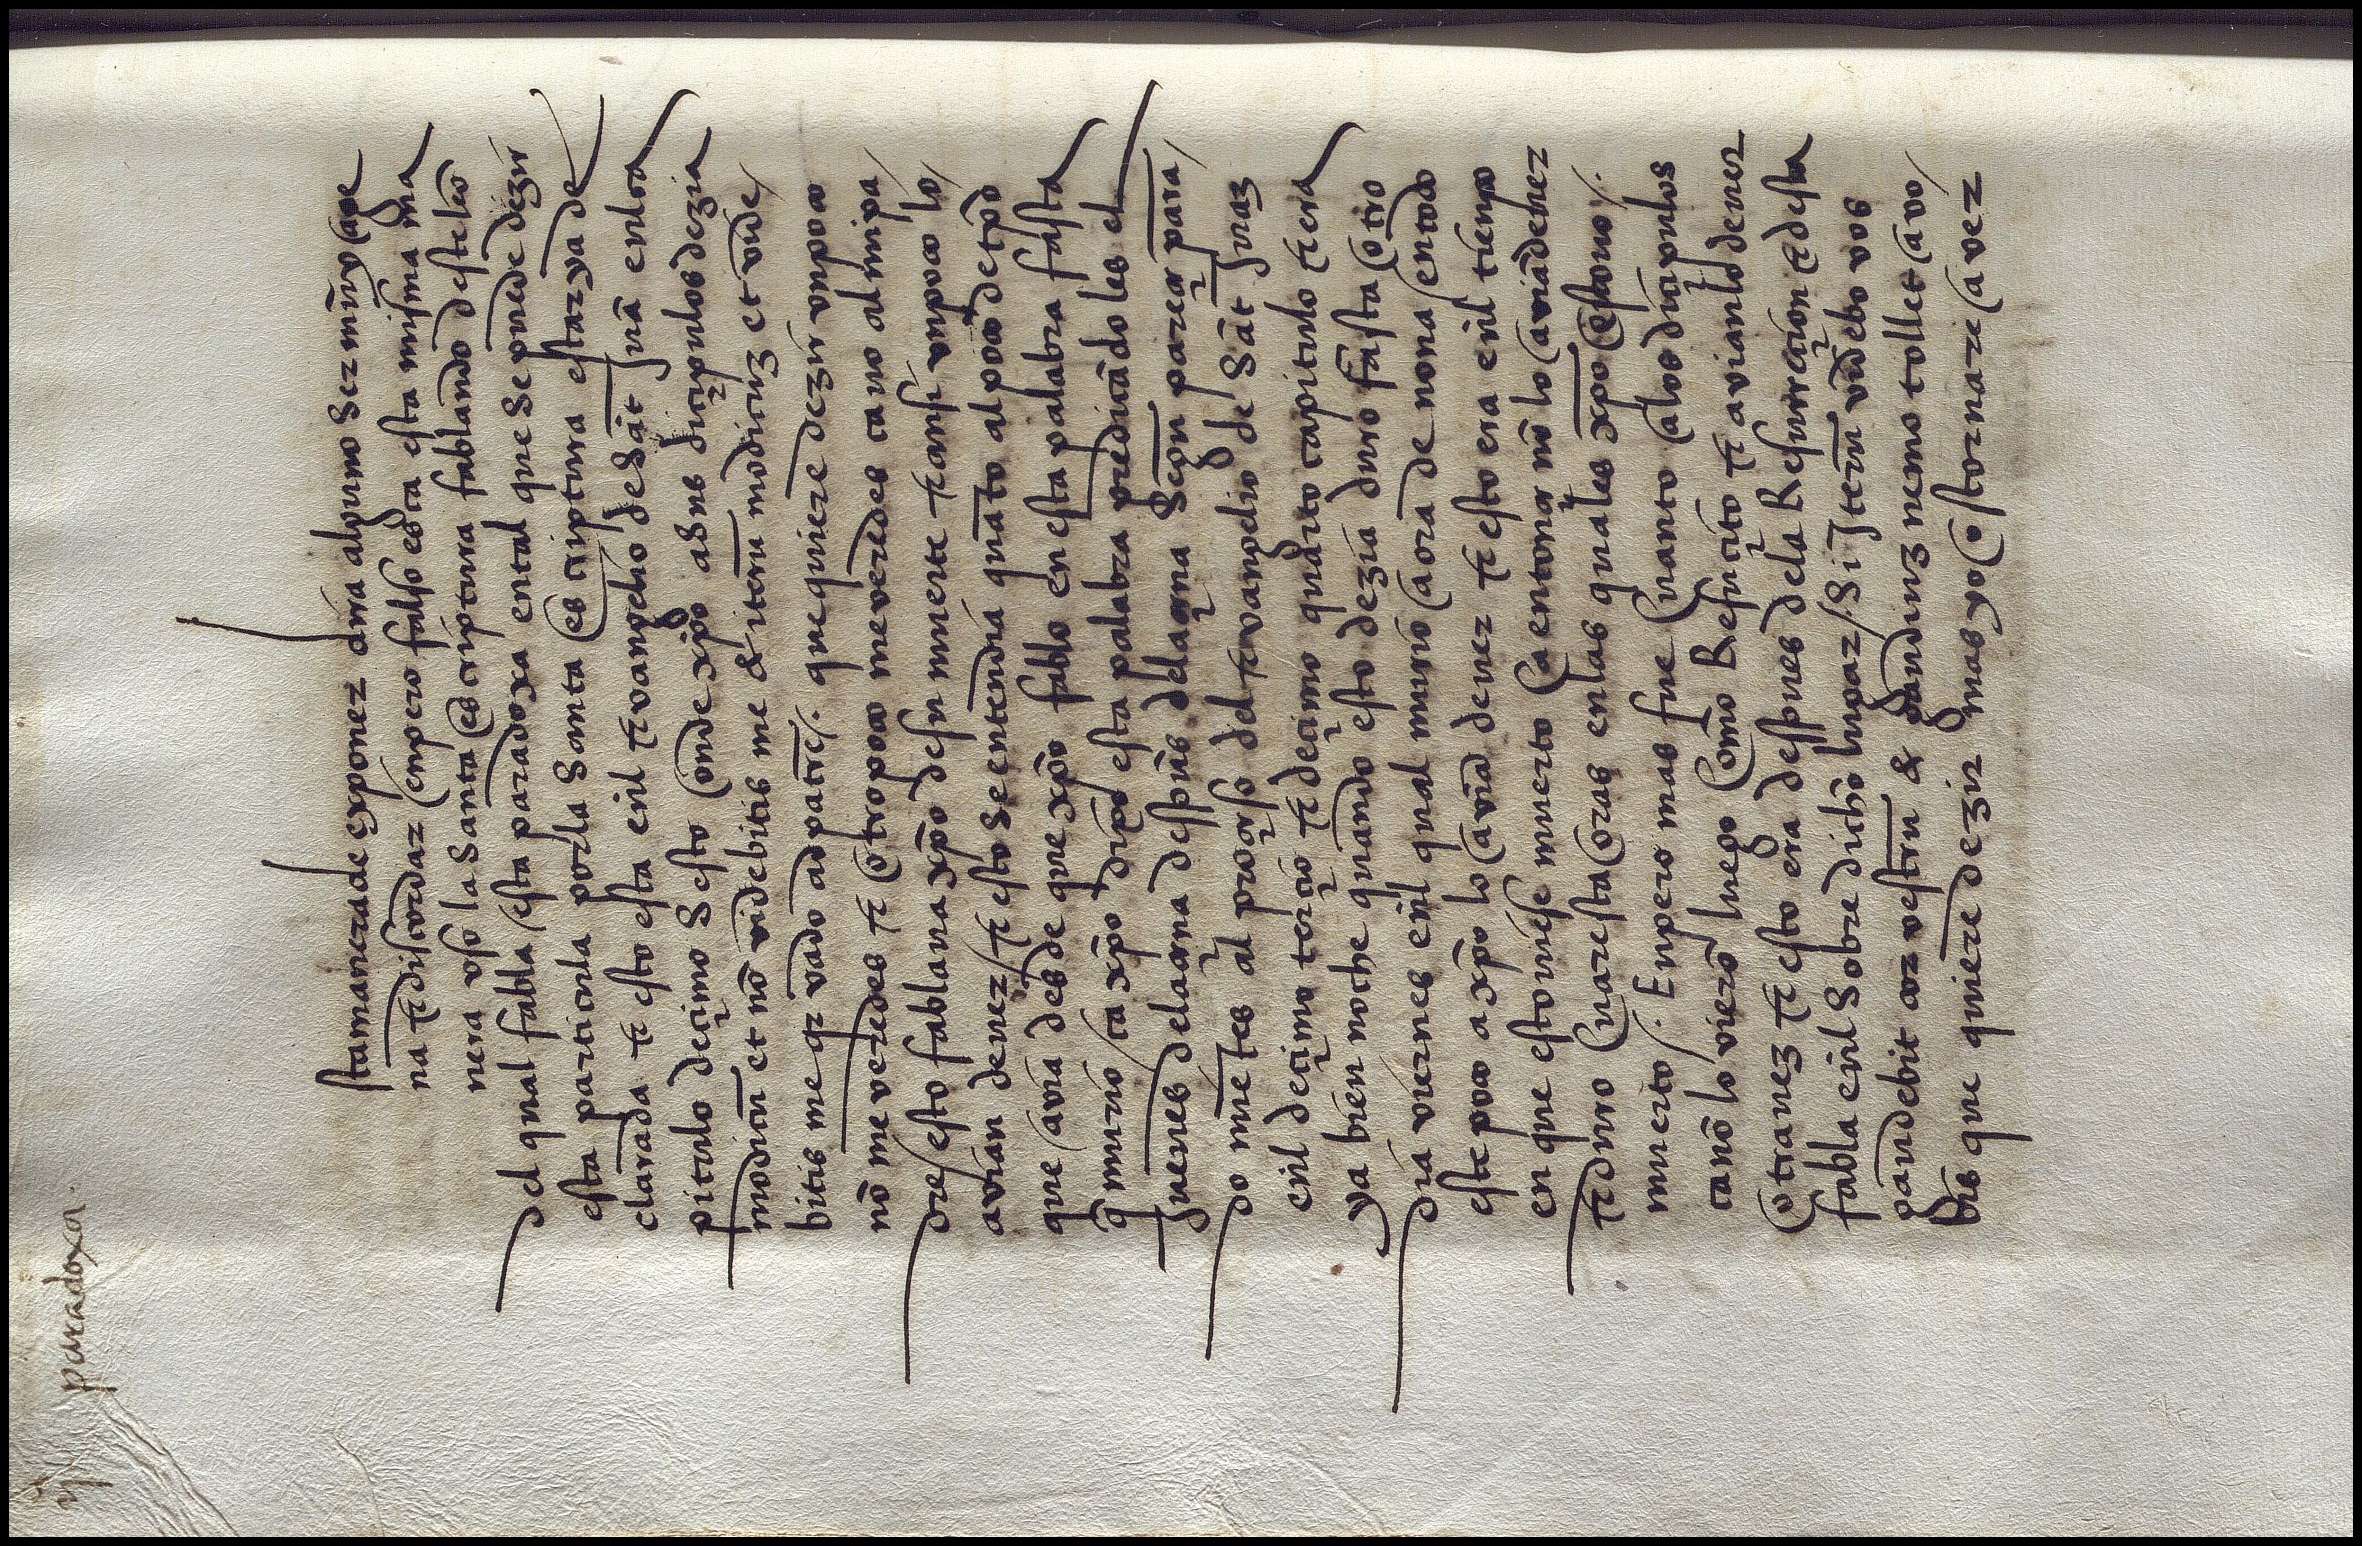 ij paradoxa.
sta manera de exponer diria alguno ser muy age
na τ discordar empero falso es ca esta misma ma
nera uso la santa escriptura fablando deste leō
del qual fabla esta paradoxa en tal que se puede dezir
esta particula por la santa escriptura estar ya de
clarada τ esto esta enl τ vangelio de Sāt Juā enl ca
pitulo deçimo Sesto onde xp̄o a sus diçipulos dezia
modicū et nō videbitis me & iterū modicuʒ et vide
bitis me qr vado ad patrē. que quiere dezir un poco
nō me veredes τ otro poco me veredes ca uo al mi pa
dre esto fablaua xp̄o de su muerte τ ansi un poco lo
avian de ver τ esto se entendia quāto al poco de tpō
que avia desde que xp̄o fablo en esta palabra fasta
q̄ murio ca xp̄o dixo esta palabra predicādo les el
Jueues de la çena despues de la çena Segū pareçe para
do miētes al proçeso del τ vangelio de Sāt Juaʒ
enl deçimo terçio τ deçimo quarto capitulo τ era
ya bien noche quando esto dezia duro fasta otro
dia viernes enl qual murio a ora de nona en todo
este poco a xp̄o lo avia de ver τ esto era enl tienpo
en que estouiese muerto Ca entonçe nō lo aviā de ver
τ duro Quarenta oras en las quales xp̄o estouo
muerto. Enpero mas fue Quanto a los diçipulos
ca nō lo vierō luego Como Resuçito τ avian lo de ver
otra vez τ esto era despues de la Resurreçion τ desta
fabla enl Sobre dicho lugar Si Iterū videbo vos
gaudebit cor vestrū & gaudiuʒ nemo tollet a vo
bis que quiere dezir mas yo os tornare a ver